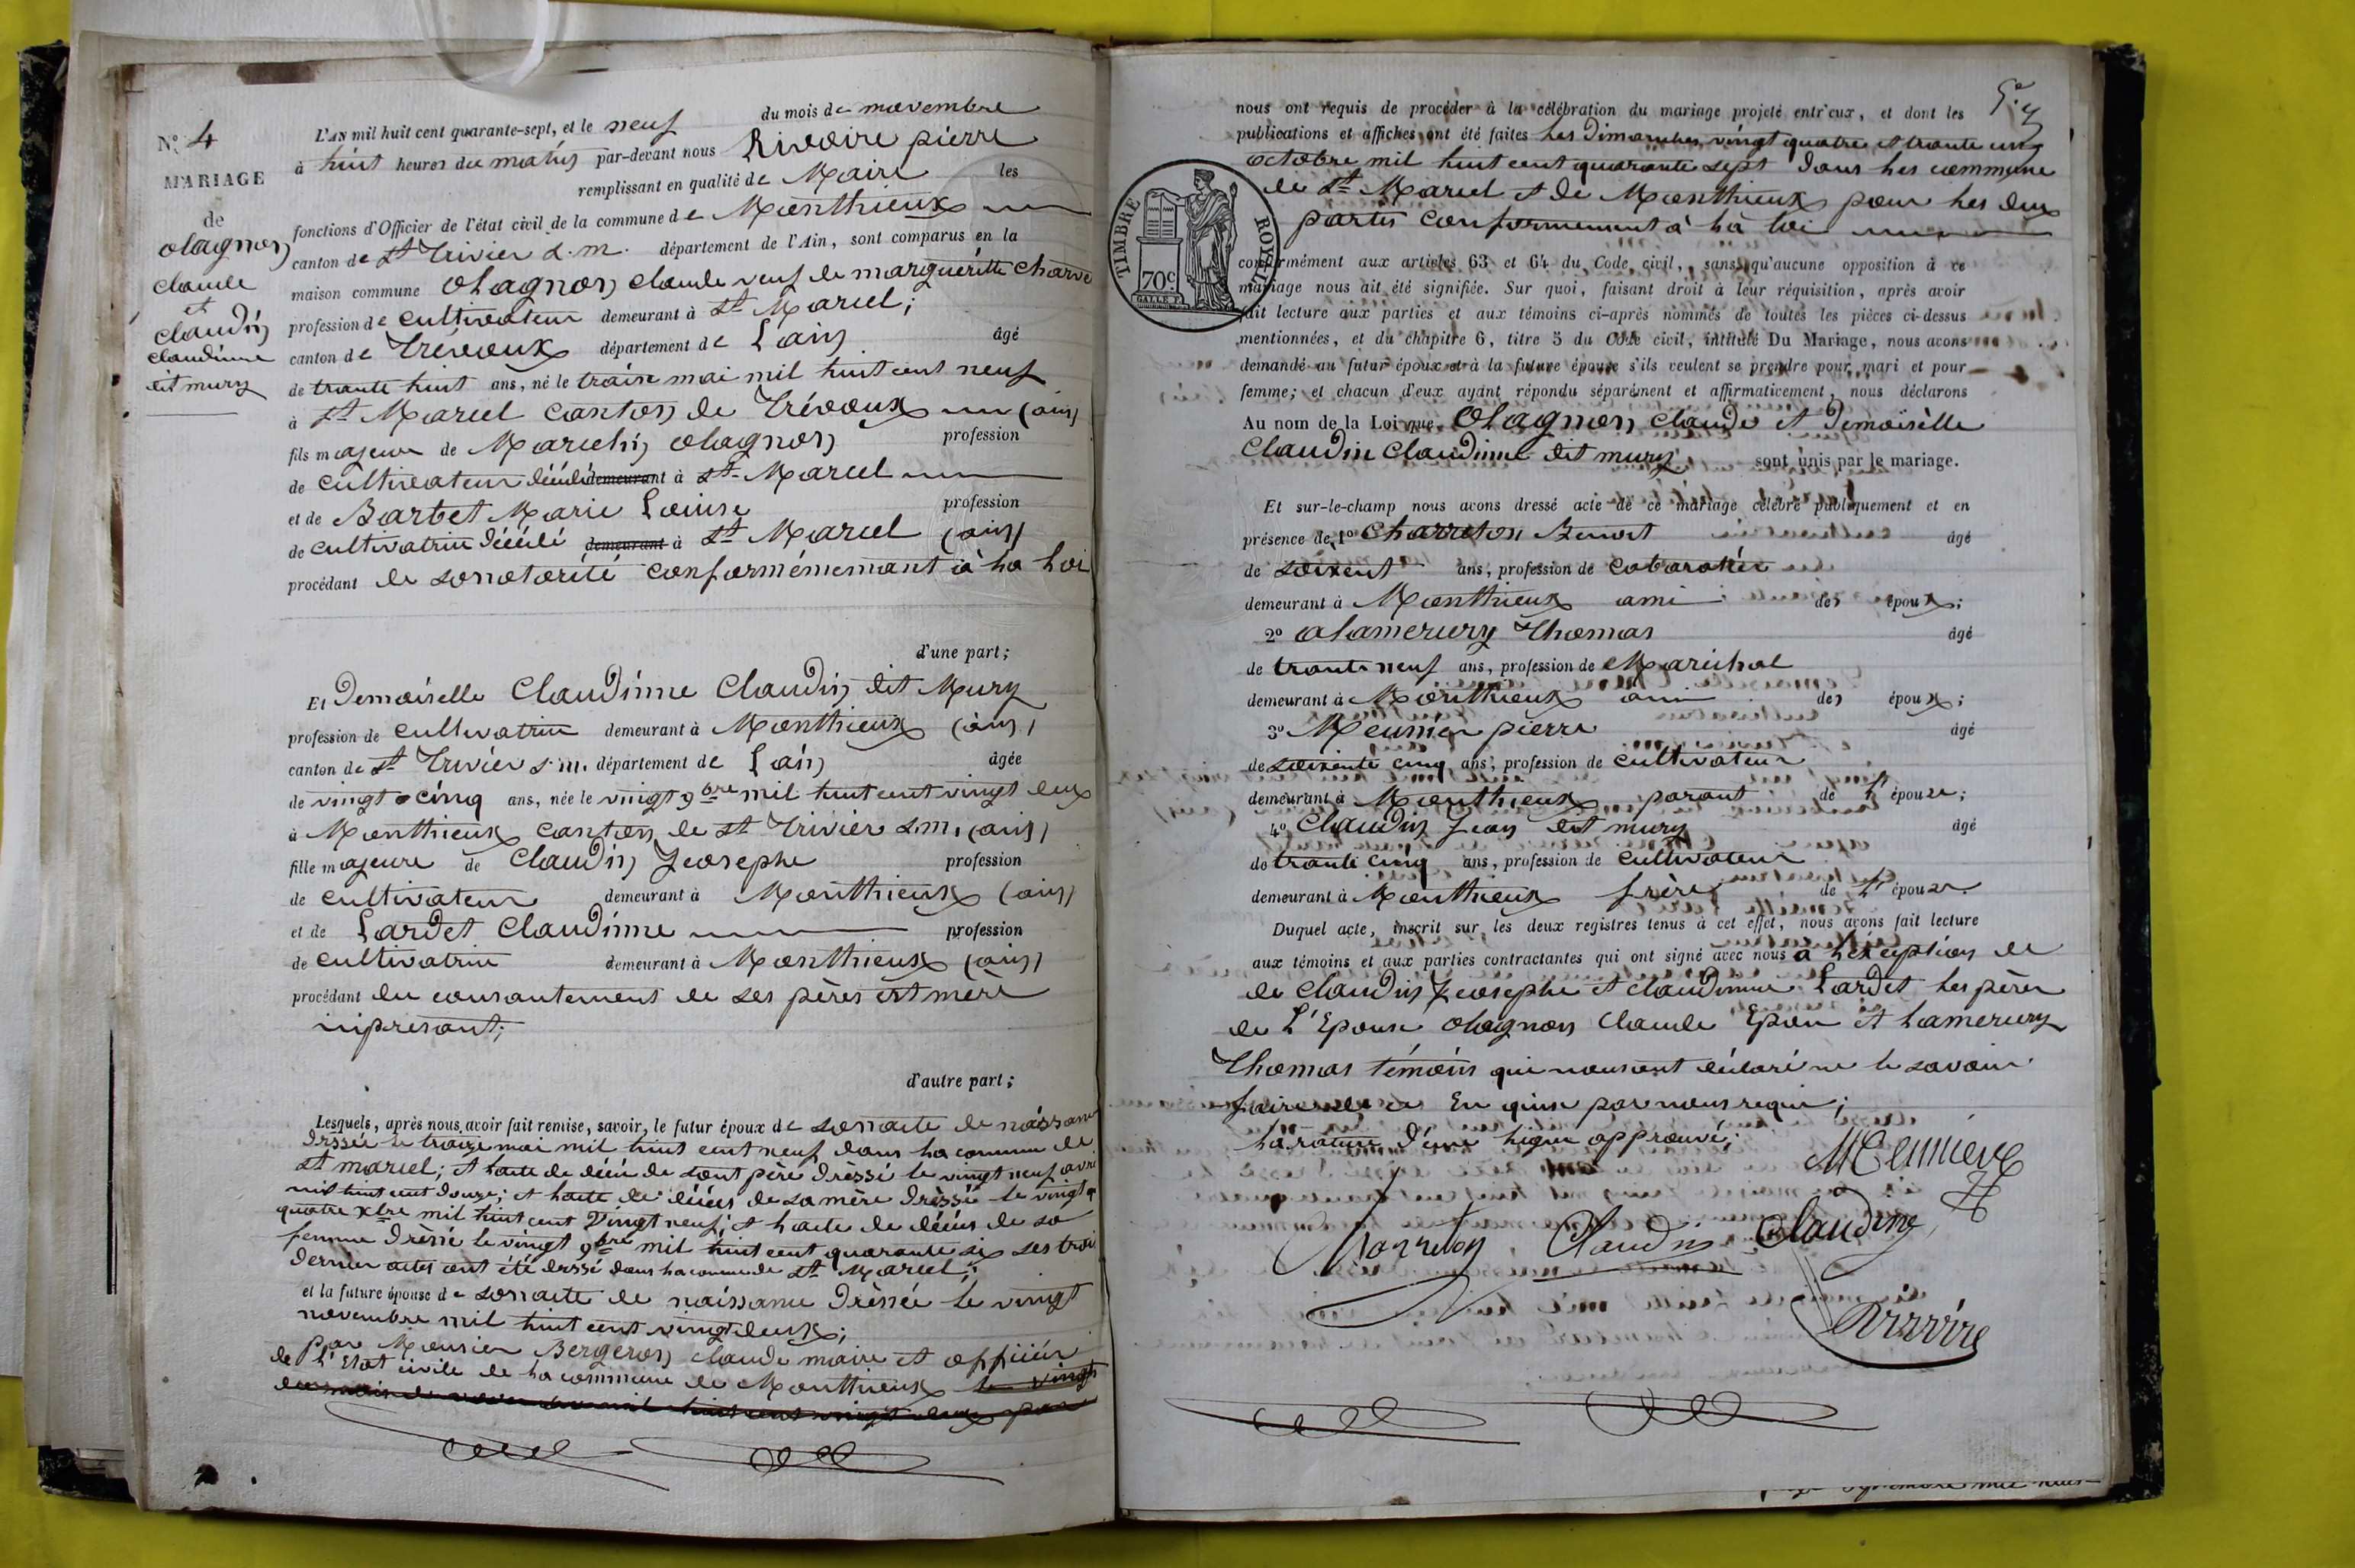 N.° 4
MARIAGE
de
Olagnon
Claude
et
Claudin
Claudinne
dit mury
L'AN mil huit cent quarante-sept, et le neuf du mois de novembre
à huit heures du matin par-devant nous Rivoire pierre
remplissant en qualité de Maire les
fonctions d'Officier de l'état civil de la commune de Monthieux
canton de St Trivier s.m. département de l'Ain, sont comparus en la
maison commune Olagnon Claude veuf de marguéritte Charve
profession de cultivateur demeurant à St Marcel;
canton de Trévoux département de Lain âgé
de trante huit ans, né le traise mai mil huit cent neuf
à St Marcel canton de Trévoux (ain)
fils majeur de Marcelin Olagnon profession
de cultivateur décédé demeurant à St Marcel
et de Barbet Marie Louise profession
de cultivatrice décédé demeurant à St Marcel (ain)
procédant de sonotorité conformémemant à la loi
d'une part;
Et Demoiselle Claudinne Claudin dit Mury
profession de cultivatrice demeurant à Monthieux (ain)
canton de St Trivier s.m. département de Lain âgée
de vingt cinq ans, née le vingt 9bre mil huit cent vingt deux
à Monthieux canton de St Trivier s.m. (ain)
fille majeure de Claudin Jeosephe profession
de cultivateur demeurant à Monthieux (ain)
et de Lardet Claudinne profession
de cultivatrice demeurant à Monthieux (ain)
procédant du consantement de ses pères et mère
inpresant;
d'autre part;
Lesquels, après nous avoir fait remise, savoir, le futur époux de sonacte de naissance
dressée le traize mai mil huit cent neuf dans la commune de
St marcel; et lacte de décé de sont père dréssé le vingt neuf avril
mil huit cent douze; et lacte de décés de sa mère dréssé le vingt
quatre xbre mil huit cent vingt neuf; et lacte de décés de sa
femme dréssé le vingt 9bre mil huit cent quarante six ses trois
dernier actes ont été dressé dans la commune de St Marcel;
et la future épouse de sonacte de naissance dréssée le vingt
novembre mil huit cent vingt deux;
par Monsieur Bergeron Claude maire et officier
de l'Etat civile de la commune de Monthieux le vingt
du mois de novembre mil huit cent vingt deux par
nous ont requis de procéder à la célébration du mariage projeté entr'eux, et dont les
publications et affiches ont été faites les Dimanches vingt quatre et trante un
octobre mil huit cent quarante sept dans les commune
de St Marcel et de Monthieux pour les deux
partis conformement à la loi
TIMBRE ROYAL
70c
conformément aux articles 63 et 64 du Code civil, sans qu'aucune opposition à ce
mariage nous ait été signifiée. Sur quoi, faisant droit à leur réquisition, après avoir
fait lecture aux parties et aux témoins ci-après nommés de toutes les pièces ci-dessus
mentionnées, et du chapitre 6, titre 5 du Code civil, intitulé Du Mariage, nous avons
demandé au futur époux et à la future épouse s'ils veulent se prendre pour mari et pour
femme; et chacun d'eux ayant répondu séparément et affirmativement, nous déclarons
Au nom de la Loi que Olagnon Claude et Demoisèlle
Claudin Claudinne dit mury sont unis par le mariage.
Et sur-le-champ nous avons dressé acte de ce mariage célébré publiquement et en
présence de, 1° Charreton Benoit âgé
de soixent ans, profession de cabaratier
demeurant à Monthieux ami des époux;
2° alamercery Thomas âgé
de trante neuf ans, profession de Maréchal
demeurant à Monthieux ami des époux;
3° Meunier pierre âgé
de soixente cinq ans, profession de cultivateur
demeurant à Monthieux parant de l'épouse;
4° Claudin Jean dit mury âgé
de trante cinq ans, profession de cultivateur
demeurant à Monthieux frère de l'épouse.
Duquel acte, inscrit sur les deux registres tenus à cet effet, nous avons fait lecture
aux témoins et aux parties contractantes qui ont signé avec nous à l'éxception de
de Claudin Jeosephe et Claudinne Lardet les pères
de L'Epouse Olagnon Claude Epou et Lamercery
Thomas témoins qui nousont déclaré ne le savoir
faire de ce En quise par nous requi;
larature d'une ligne approuvé;
Meunier
Charreton Claudin Claudine
Rivoire